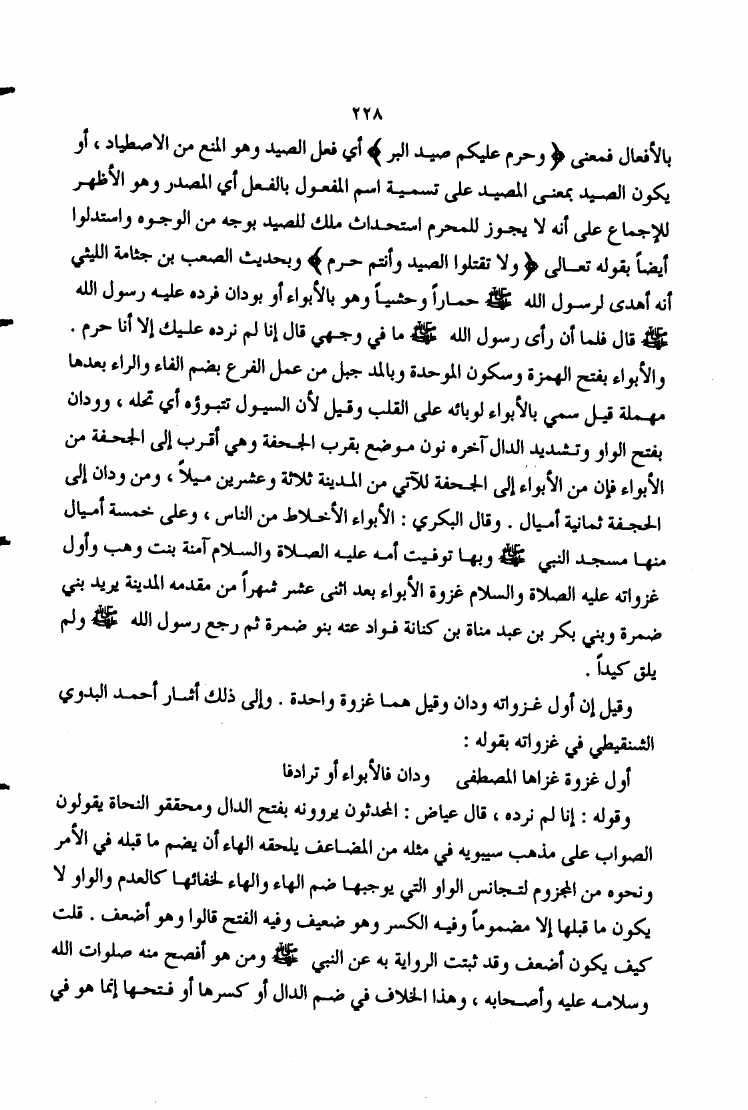 ٢٢٨
بالأفعال فمعنى ﴿ وحرم عليكم صيد البر ﴾ أي فعل الصيد وهو المنع من الاصطياد ، أو
يكون الصيد بمعنى المصيد على تسمية اسم المفعول بالفعل أي المصدر وهو الأظهر
للإجماع على أنه لا يجوز للمحرم استحداث ملك للصيد بوجه من الوجوه واستدلوا
أيضاً بقوله تعالى ﴿ ولا تقتلوا الصيد وأنتم حرم ﴾ وبحديث الصعب بن جثامة الليثي
أنه أهدى لرسول الله ﷺ حماراً وحشياً وهو بالأبواء أو بودان فرده عليه رسول الله
ﷺ قال فلما أن رأى رسول الله ﷺ ما في وجهي قال إنا لم نرده عليك إلا أنا حرم .
والأبواء بفتح الهمزة وسكون الموحدة وبالمد جبل من عمل الفرع بضم الفاء والراء بعدها
مهملة قيل سمي بالأبواء لوبائه على القلب وقيل لأن السيول تتبوؤه أي تحله ، وودان
بفتح الواو وتشديد الدال آخره نون موضع بقرب الجحفة وهي أقرب إلى الجحفة من
الأبواء فإن من الأبواء إلى الجحفة للآتي من المدينة ثلاثة وعشرين ميلاً ، ومن ودان إلى
الحجفة ثمانية أميال . وقال البكري : الأبواء الأخلاط من الناس ، وعلى خمسة أميال
منها مسجد النبي ﷺ وبها توفيت أمه عليه الصلاة والسلام آمنة بنت وهب وأول
غزواته عليه الصلاة والسلام غزوة الأبواء بعد اثنى عشر شهراً من مقدمه المدينة يريد بني
ضمرة وبني بكر بن عبد مناة بن كنانة فواد عته بنو ضمرة ثم رجع رسول الله ﷺ ولم
يلق كيداً .
وقيل إن أول غزواته ودان وقيل هما غزوة واحدة . وإلى ذلك أشار أحمد البدوي
الشنقيطي في غزواته بقوله :
أول غزوة غزاها المصطفى ودان فالأبواء أو ترادفا
وقوله : إنا لم نرده ، قال عياض : المحدثون يروونه بفتح الدال ومحققو النحاة يقولون
الصواب على مذهب سيبويه في مثله من المضاعف يلحقه الهاء أن يضم ما قبله في الأمر
ونحوه من المجزوم لتجانس الواو التي يوجبها ضم الهاء والهاء لخفائها كالعدم والواو لا
يكون ما قبلها إلا مضموماً وفيه الكسر وهو ضعيف وفيه الفتح قالوا وهو أضعف . قلت
كيف يكون أضعف وقد ثبتت الرواية به عن النبي ﷺ ومن هو أفصح منه صلوات الله
وسلامه عليه وأصحابه ، وهذا الخلاف في ضم الدال أو كسرها أو فتحها إنما هو في